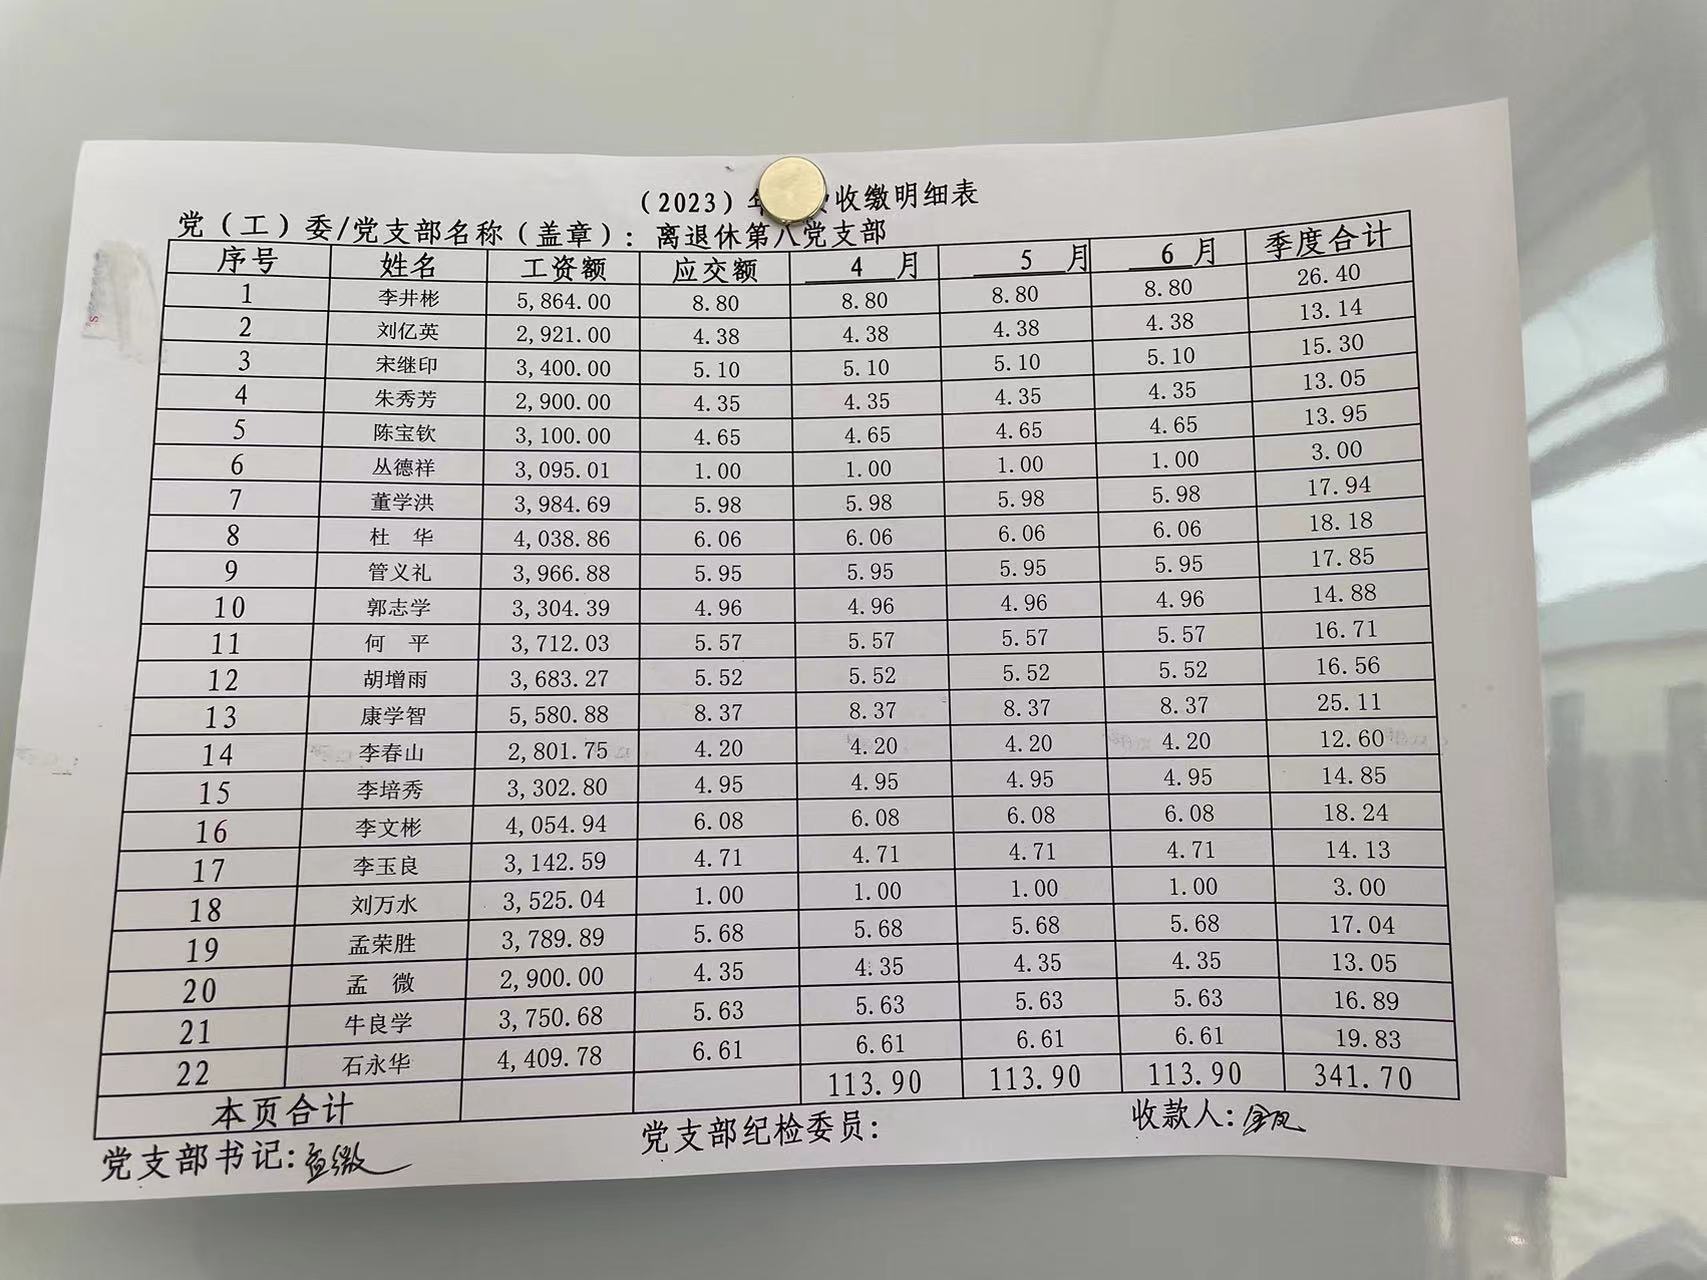 （2023）年 收缴明细表
党（工）委/党支部名称（盖章）：离退休第八党支部
序号 姓名 工资额 应交额 4 月 5 月 6 月 季度合计
1 李井彬 5,864.00 8.80 8.80 8.80 8.80 26.40
2 刘亿英 2,921.00 4.38 4.38 4.38 4.38 13.14
3 宋继印 3,400.00 5.10 5.10 5.10 5.10 15.30
4 朱秀芳 2,900.00 4.35 4.35 4.35 4.35 13.05
5 陈宝钦 3,100.00 4.65 4.65 4.65 4.65 13.95
6 丛德祥 3,095.01 1.00 1.00 1.00 1.00 3.00
7 董学洪 3,984.69 5.98 5.98 5.98 5.98 17.94
8 杜 华 4,038.86 6.06 6.06 6.06 6.06 18.18
9 管义礼 3,966.88 5.95 5.95 5.95 5.95 17.85
10 郭志学 3,304.39 4.96 4.96 4.96 4.96 14.88
11 何 平 3,712.03 5.57 5.57 5.57 5.57 16.71
12 胡增雨 3,683.27 5.52 5.52 5.52 5.52 16.56
13 康学智 5,580.88 8.37 8.37 8.37 8.37 25.11
14 李春山 2,801.75 4.20 4.20 4.20 4.20 12.60
15 李培秀 3,302.80 4.95 4.95 4.95 4.95 14.85
16 李文彬 4,054.94 6.08 6.08 6.08 6.08 18.24
17 李玉良 3,142.59 4.71 4.71 4.71 4.71 14.13
18 刘万水 3,525.04 1.00 1.00 1.00 1.00 3.00
19 孟荣胜 3,789.89 5.68 5.68 5.68 5.68 17.04
20 孟 微 2,900.00 4.35 4.35 4.35 4.35 13.05
21 牛良学 3,750.68 5.63 5.63 5.63 5.63 16.89
22 石永华 4,409.78 6.61 6.61 6.61 6.61 19.83
本页合计 113.90 113.90 113.90 341.70
党支部书记：孟微 党支部纪检委员： 收款人：